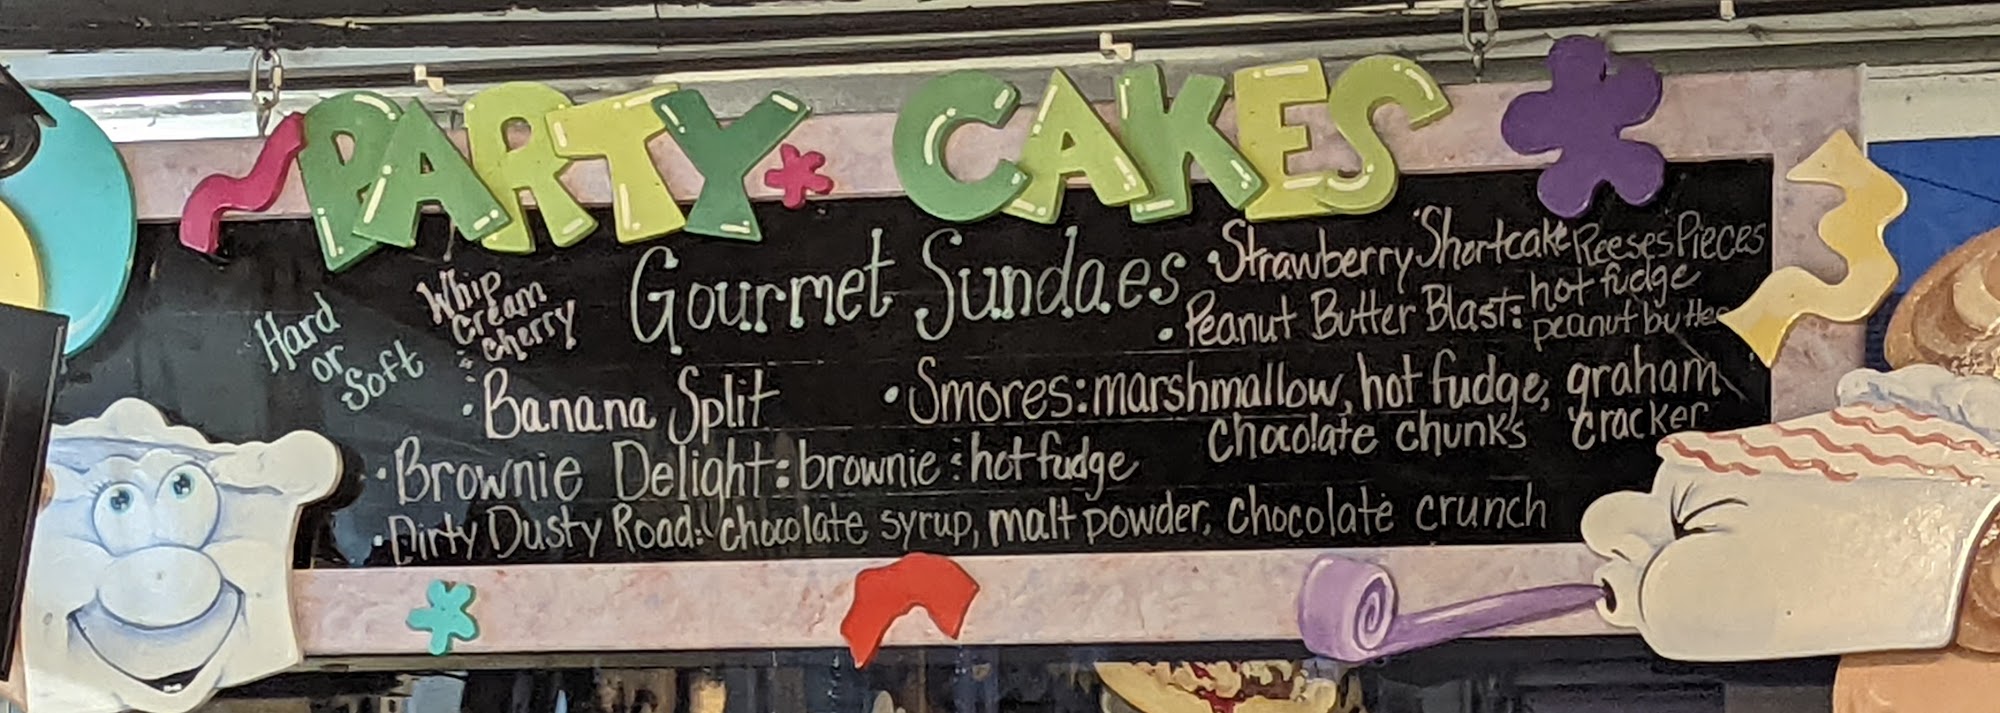 PARTY CAKES
Gourmet Sundaes
Hard
or
Soft
Whip
Cream
Cherry
• Strawberry Shortcake
• Peanut Butter Blast: Reeses Pieces
hot fudge
peanut butter
• Banana Split
• Smores: marshmallow, hot fudge, graham cracker
chocolate chunks
• Brownie Delight: brownie : hot fudge
• Dirty Dusty Road: chocolate syrup, malt powder, chocolate crunch